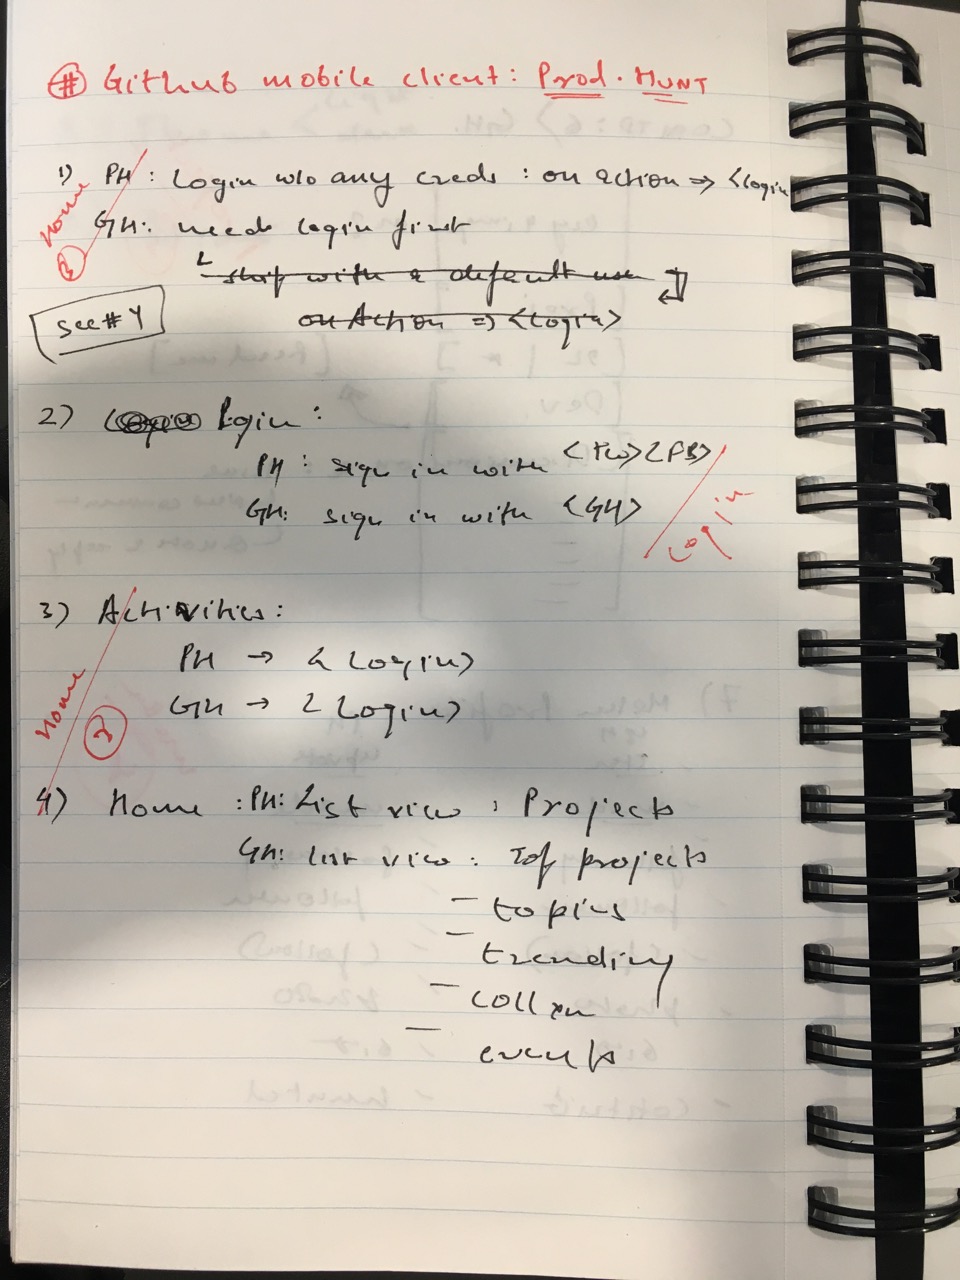 # Github mobile client: Prod. HUNT
1) PH: Login w/o any creds: on action ⇒ <Login
GH: needs login first
Home
with a default use
on Action ⇒ <Login>
See # 4
2) Login:
PH: sign in with <tw> <FB>
GH: sign in with <GH>
Login
3) Activities:
PH → <Login>
GH → <Login>
Home
4) Home: PH: List view: Projects
GH: list view: Top projects
- topics
- trending
- collxn
- events